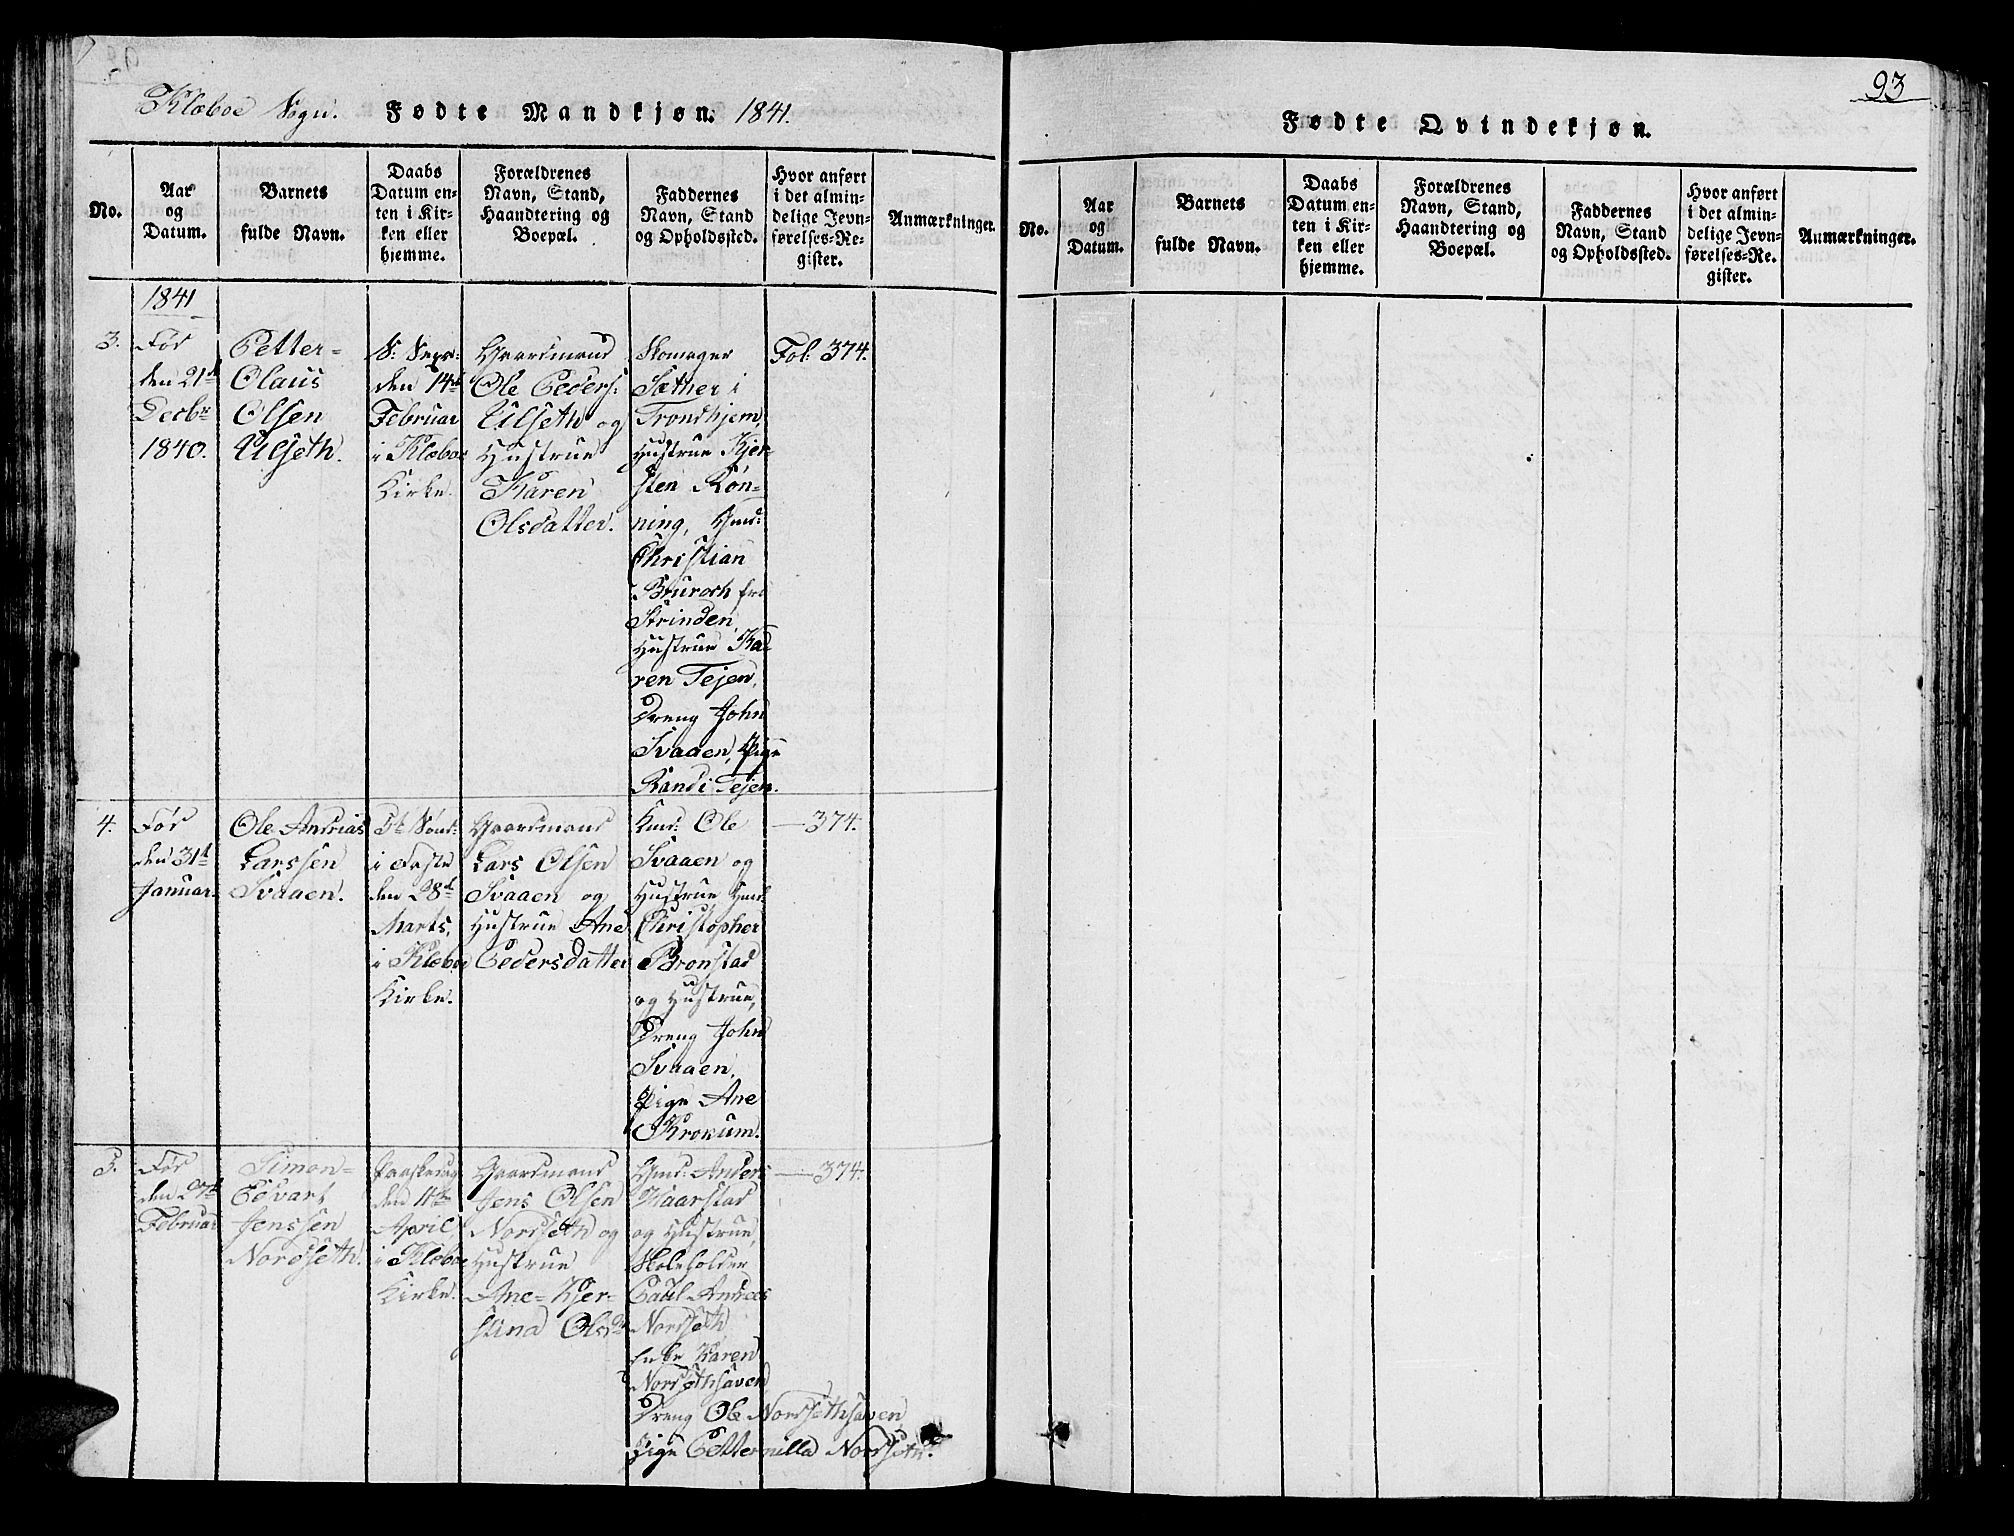 93
Klæboe Sogn. Fødte Mandkjøn. 1841.
No.
Aar
og
Datum.
Barnets
fulde Navn.
Daabs
Datum en-
ten i Kir-
ken eller
hjemme.
Forældrenes
Navn, Stand,
Haandtering og
Boepæl.
Faddernes
Navn, Stand
og Opholdssted.
Hvor anført
i det almin-
delige Jevn-
førelses-Re-
gister.
Anmærkninger.
1841
3.
Før
den 21de
Decbr
1840.
Petter-
Olaus
Olsen
Ulseth.
S: Sexa:
den 14de
Februar
i Klæboe
Kirke.
Gaardmand
Ole Peders:
Ulseth og
Hustrue
Karen
Olsdatter.
Skomager
Sæther i
Trondhjem,
Hustrue Kjer-
sten Røn-
ning, Gmd:
Christian
Bruroch fra
Strinden,
Hustrue Ka-
ren Tejen,
Dreng John
Svaaen, Pige
Randi Tejen.
Fol: 374.
4.
Før
den 31te
Januar.
Ole Andrias
Larssen
Svaaen.
5te Sønd:
i Faste
den 28de
Marts,
i Klæboe
Kirke.
Gaardmand
Lars Olsen
Svaaen og
Hustrue Ane
Pedersdatter
Kmd: Ole
Svaaen og
Hustrue Gmd:
Christopher
Bronstad
og Hustrue,
Dreng John
Svaaen,
Pige Ane
Krokum.
— 374.
5.
Før
den 27de
Februar
Simon-
Edvart
Jenssen
Nordseth.
Paaskedag
den 11te
April,
i Klæboe
Kirke.
Gaardmand
Jens Olsen
Nordseth og
Hustrue
Ane-Kjer-
stina Olsdtr
Gmd: Anders
Haarstad
og Hustrue,
Skoleholder
Paul Andrees
Nordseth,
Enke Karen
Nordsethsaven
Dreng Ole Nordsethsaven,
Pige Petternilla Nordseth.
— 374.
Fødte Qvindekjøn.
No.
Aar
og
Datum.
Barnets
fulde Navn.
Daabs
Datum en-
ten i Kir-
ken eller
hjemme.
Forældrenes
Navn, Stand,
Haandtering og
Boepæl.
Faddernes
Navn, Stand
og Opholdssted.
Hvor anført
i det almin-
delige Jevn-
førelses-Re-
gister.
Anmærkninger.